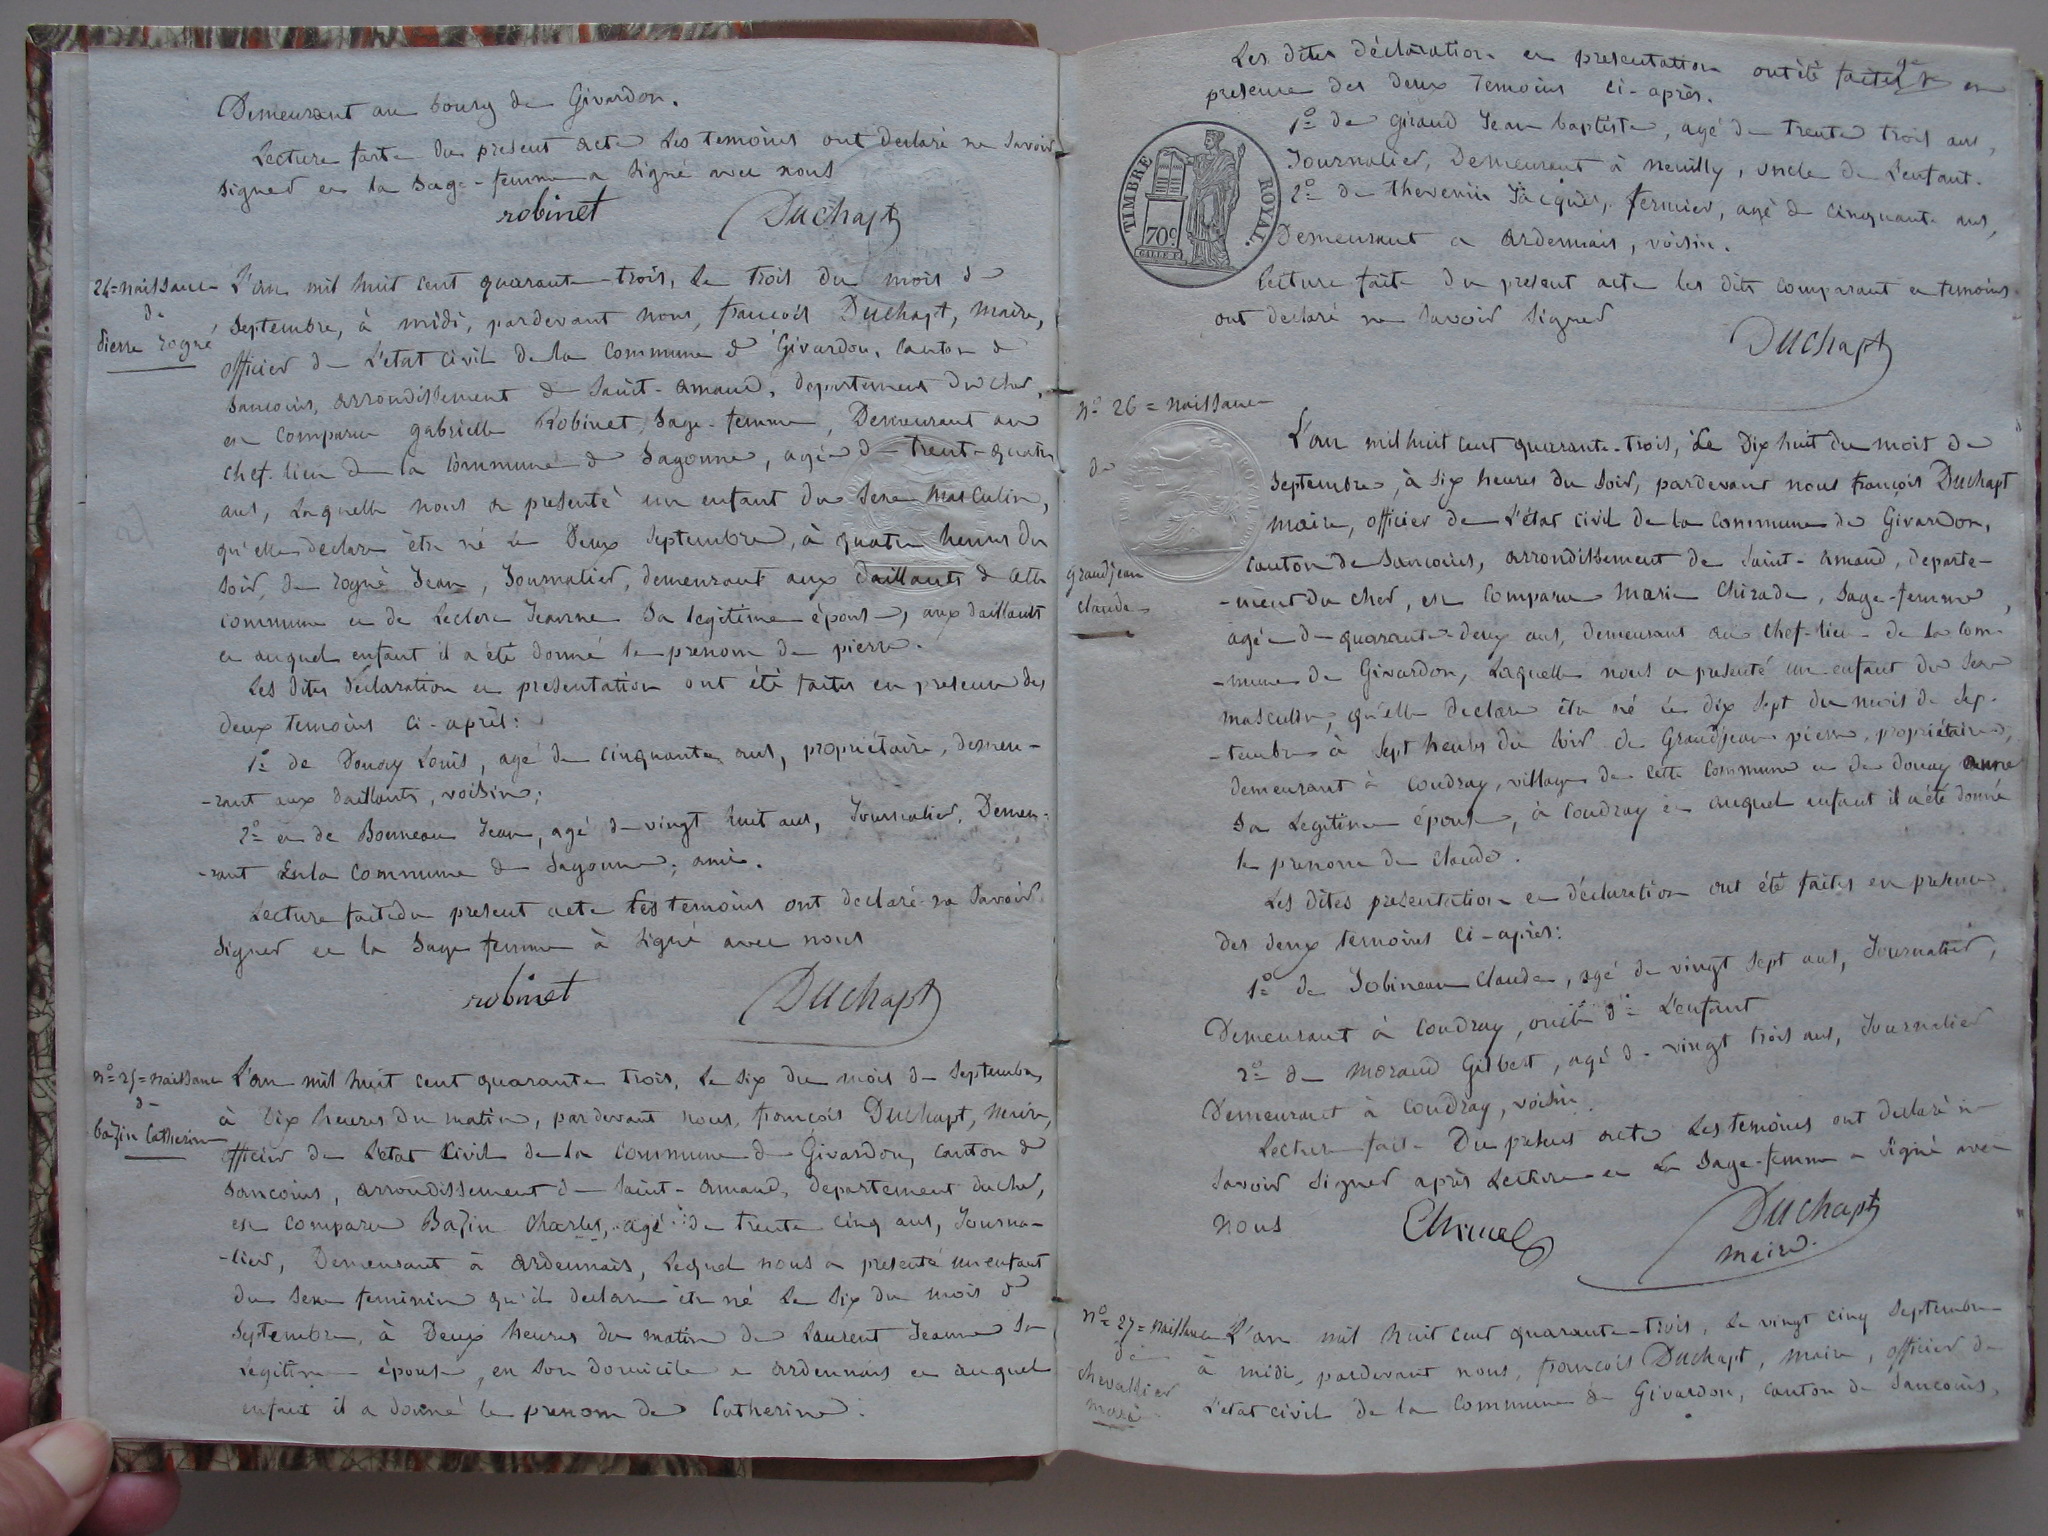 Demeurant au bourg de Givardon.
Lecture faite du present acte les temoins ont declaré ne savoir
signer et la Sage-femme a signé avec nous
robinet Duchapt
24=naissance
de
pierre rogné
L'an mil huit cent quarante-trois, le trois du mois de
Septembre, à midi, pardevant nous, françois Duchapt, maire,
officier de L'etat civil de la commune de Givardon, canton de
Sancoins, arrondissement de Saint-amand, departement du cher,
est comparu gabrielle Robinet, Sage-femme, Demeurant au
chef-lieu de la commune de Sagonne, agée de trente-quatre
ans, Laquelle nous a presenté un enfant du sexe masculin,
qu'elle declare être né le Deux Septembre, à quatre heures du
soir, de rogné Jean, Journalier, demeurant aux daillants de cette
commune et de Leclerc Jeanne sa legitime épouse, aux daillants
et auquel enfant il a été donné le prenom de pierre.
Les dites déclaration et presentation ont été faites en presence des
deux temoins ci-après:
1º de Douay Louis, agé de cinquante ans, propriétaire, demeu-
-rant aux daillants, voisin;
2º et de Bonneau Jean, agé de vingt huit ans, Journalier, Demeu-
-rant en la commune de Sagonne, ami.
Lecture faite du present acte les temoins ont declaré ne savoir
signer et la Sage femme à signé avec nous
robinet Duchapt
nº 25=naissance
de
bazin Catherine
L'an mil huit cent quarante trois, le six du mois de Septembre,
à dix heures du matin, pardevant nous, françois Duchapt, maire,
officier de L'etat civil de la commune de Givardon, canton de
Sancoins, arrondissement de Saint-amand, departement du cher,
est comparu Bazin Charles, agé de trente cinq ans, Journa-
-lier, Demeurant à ardennais, Lequel nous a presenté un enfant
du sexe feminin qu'il declare être né le six du mois de
Septembre, à Deux heures du matin de Laurent Jeanne sa
legitime épouse, en son domicile a ardennais et auquel
enfant il a donné le prenom de Catherine.
Les dites déclaration et presentation ont été faites en
presence des deux temoins ci-après.
1º de Giraud Jean baptiste, agé de trente trois ans,
Journalier, Demeurant à neuilly, oncle de L'enfant.
2º de thevenin Jacques, fermier, agé de cinquante ans,
Demeurant a ardennais, voisin.
Lecture faite du present acte les dits comparant et temoins
ont declaré ne savoir signer
Duchapt
TIMBRE ROYAL
70c
nº 26=naissance
de
grandjean
claude
L'an mil huit cent quarante-trois, le dix huit du mois de
Septembre, à six heures du soir, pardevant nous françois Duchapt
maire, officier de L'état civil de la commune de Givardon,
canton de Sancoins, arrondissement de Saint-amand, departe-
-ment du cher, est comparu marie Chirade, Sage-femme,
agée de quarante-deux ans, demeurant au chef-lieu de la com-
-mune de Givardon, Laquelle nous a presenté un enfant du sexe
masculin, qu'elle declare être né le dix sept du mois de Sep-
-tembre à sept heures du soir de Grandjean pierre, propriétaire,
demeurant à coudray, village de cette commune et de douay anne
sa legitime épouse, à coudray et auquel enfant il a été donné
le prenom de claude.
Les dites présentation et déclaration ont été faites en presence
des deux temoins ci-après:
1º de Jobineau claude, agé de vingt sept ans, Journalier,
Demeurant à coudray, oncle de L'enfant
2º de moraud Gilbert, agé de vingt trois ans, Journalier
Demeurant à coudray, voisin.
Lecture faite Du present acte les temoins ont declaré ne
savoir signer après Lecture et la Sage-femme a signé avec
nous
Duchapt
maire.
nº 27=naissance
de
chevallier
L'an mil huit cent quarante-trois, le vingt cinq Septembre
à midi, pardevant nous, françois Duchapt, maire, officier de
L'etat civil de la commune de Givardon, canton de Sancoins,